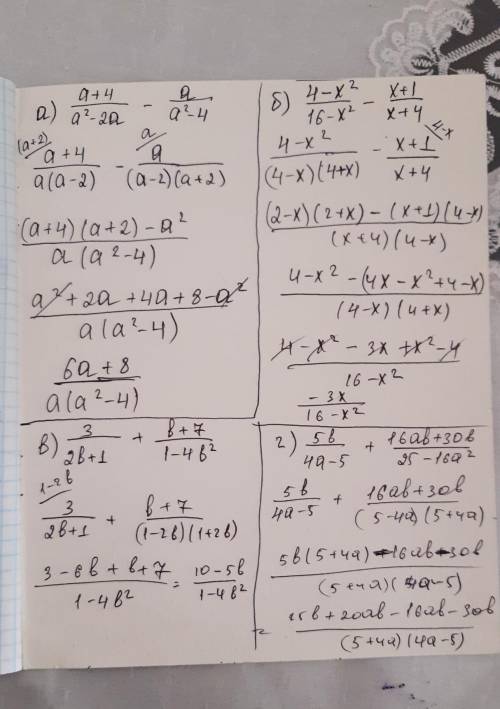 а) (a+4)/(a²-2a) - a/(a²-4)
(a+2)/ (a+4)/(a(a-2)) - a/ a/((a-2)(a+2))
((a+4)(a+2)-a²)/(a(a²-4))
(a²+2a+4a+8-a²)/(a(a²-4))
(6a+8)/(a(a²-4))
б) (4-x²)/(16-x²) - (x+1)/(x+4)
(4-x²)/((4-x)(4+x)) - (x+1)/(x+4) /4-x
((2-x)(2+x)-(x+1)(4-x))/((x+4)(4-x))
(4-x²-(4x-x²+4-x))/((4-x)(4+x))
(4-x²-3x+x²-4)/(16-x²)
(-3x)/(16-x²)
в) 3/(2b+1) + (b+7)/(1-4b²)
1-2b/ 3/(2b+1) + (b+7)/((1-2b)(1+2b))
(3-6b+b+7)/(1-4b²) = (10-5b)/(1-4b²)
г) 5b/(4a-5) + (16ab+30b)/(25-16a²)
5b/(4a-5) + (16ab+30b)/((5-4a)(5+4a))
(5b(5+4a)-16ab-30b)/((5+4a)(4a-5))
= (25b+20ab-16ab-30b)/((5+4a)(4a-5))